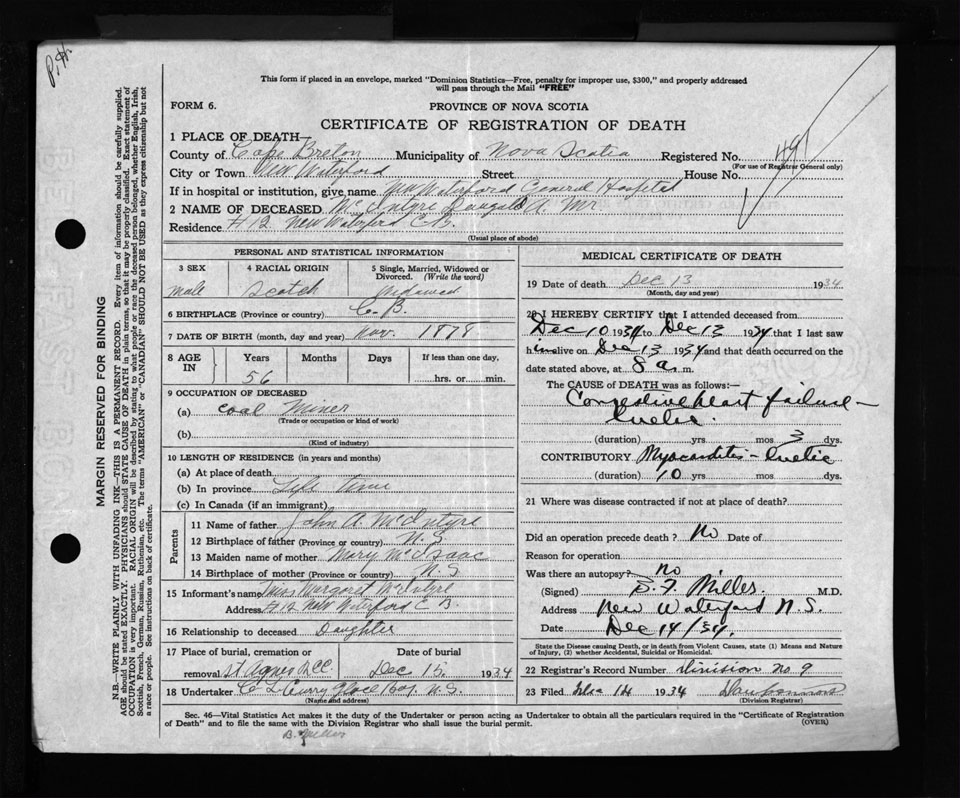 P.H.
This form if placed in an envelope, marked "Dominion Statistics—Free, penalty for improper use, $300," and properly addressed
will pass through the Mail "FREE"
FORM 6. PROVINCE OF NOVA SCOTIA
CERTIFICATE OF REGISTRATION OF DEATH
1 PLACE OF DEATH—
County of Cape Breton Municipality of Nova Scotia Registered No. 491
(For use of Registrar General only)
City or Town New Waterford Street House No.
If in hospital or institution, give name New Waterford General Hospital
2 NAME OF DECEASED McIntyre Dougald A. Mr.
Residence #12 New Waterford C.B.
(Usual place of abode)
PERSONAL AND STATISTICAL INFORMATION
3 SEX 4 RACIAL ORIGIN 5 Single, Married, Widowed or
Divorced. (Write the word)
male Scotch Widowed
6 BIRTHPLACE (Province or country) C.B.
7 DATE OF BIRTH (month, day and year) Nov. 1878
8 AGE IN Years Months Days If less than one day,
56 hrs. or min.
9 OCCUPATION OF DECEASED
(a) Coal Miner
(Trade or occupation or kind of work)
(b)
(Kind of industry)
10 LENGTH OF RESIDENCE (in years and months)
(a) At place of death
(b) In province Life Time
(c) In Canada (if an immigrant)
Parents
11 Name of father John A. McIntyre
12 Birthplace of father (Province or country) N.S.
13 Maiden name of mother Mary McIsaac
14 Birthplace of mother (Province or country) N.S.
15 Informant's name Miss Margaret McIntyre
Address #12 New Waterford C.B.
16 Relationship to deceased Daughter
17 Place of burial, cremation or Date of burial
removal St Agnes R.C.C. Dec 15 1934
18 Undertaker Curry Glace Bay. N.S.
(Name and address)
MEDICAL CERTIFICATE OF DEATH
19 Date of death Dec 13 1934
(Month, day and year)
20 I HEREBY CERTIFY that I attended deceased from
Dec 10 1934 to Dec 13 1934 that I last saw
him alive on Dec 13 1934 and that death occurred on the
date stated above, at 8 a. m.
The CAUSE of DEATH was as follows:—
Congestive heart failure—
luetic.
(duration) yrs. mos 3 dys.
CONTRIBUTORY Myocarditis - luetic
(duration) 10 yrs. mos. dys.
21 Where was disease contracted if not at place of death?
Did an operation precede death? No Date of
Reason for operation
Was there an autopsy? No
(Signed) B. F. Miller. M.D.
Address New Waterford N.S.
Date Dec 14/34.
State the Disease causing Death, or in death from Violent Causes, state (1) Means and Nature
of Injury, (2) whether Accidental, Suicidal or Homicidal.
22 Registrar's Record Number Division No. 9
23 Filed 14 1934
(Division Registrar)
Sec. 46—Vital Statistics Act makes it the duty of the Undertaker or person acting as Undertaker to obtain all the particulars required in the "Certificate of Registration
of Death" and to file the same with the Division Registrar who shall issue the burial permit. (OVER)
B. Miller
MARGIN RESERVED FOR BINDING
N.B.—WRITE PLAINLY WITH UNFADING INK—THIS IS A PERMANENT RECORD. Every item of information should be carefully supplied.
AGE should be stated EXACTLY. PHYSICIANS should STATE CAUSE OF DEATH in plain terms, so that it may be properly classified. Exact statement of
OCCUPATION is very important. RACIAL ORIGIN will be described by stating to what people or race the deceased person belonged, whether English, Irish,
Scottish, French, German, Russian, Ruthenian, etc. The terms "AMERICAN" or "CANADIAN" SHOULD NOT BE USED as they express citizenship but not
a race or people. See instructions on back of certificate.